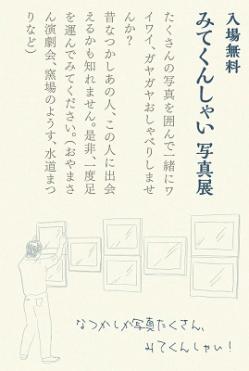 入場無料
みてくんしゃい 写真展
たくさんの写真を囲んで一緒にワ
イワイ、ガヤガヤおしゃべりしませ
んか？
昔なつかしあの人、この人に出会
えるかも知れません。是非、一度足
を運んでみてください。（おやまさ
ん演劇会、窯場のようす、水道まつ
りなど）
なつかしか写真たくさん、
みてくんしゃい！